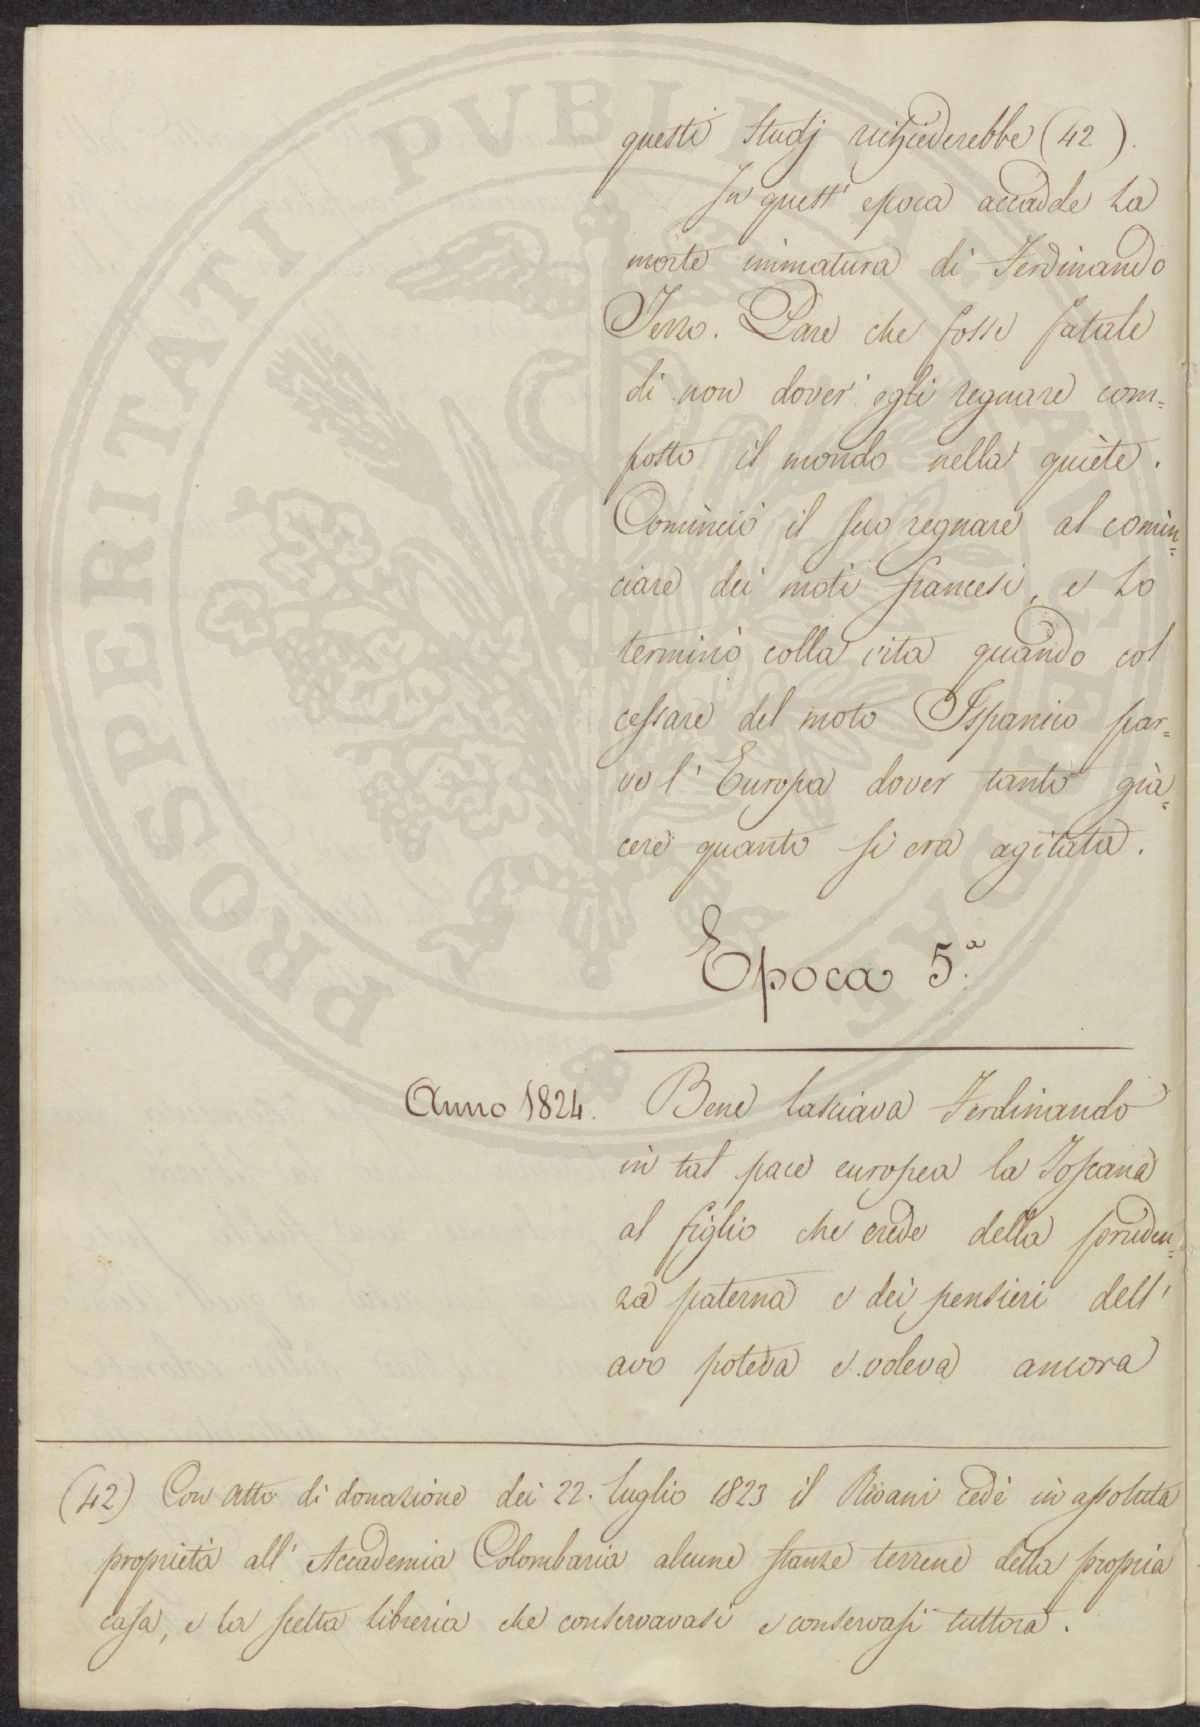 questi Studj richiederebbe (42).
In quest' epoca accadde la
morte immatura di Ferdinando
Terzo. Pare che fosse fatale
di non dover egli regnare com=
posto il mondo nella quiete.
Cominciò il suo regnare al comin=
ciare dei moti francesi, e lo
terminò colla vita quando col
cessare del moto Ispanico par=
ve l'Europa dover tanto già=
cere quanto si era agitata.
Epoca 5.a
Anno 1824. Bene lasciava Ferdinando
in tal pace europea la Toscana
al figlio che erede della pruden=
za paterna e dei pensieri dell'
avo poteva e voleva ancora
(42) Con atto di donazione dei 22. luglio 1823 il Rivani cedè in assoluta
proprietà all' Accademia Colombaria alcune stanze terrene della propria
casa, e la scelta libreria che conservavasi e conservasi tuttora.
PROSPERITATI PVBLICAE